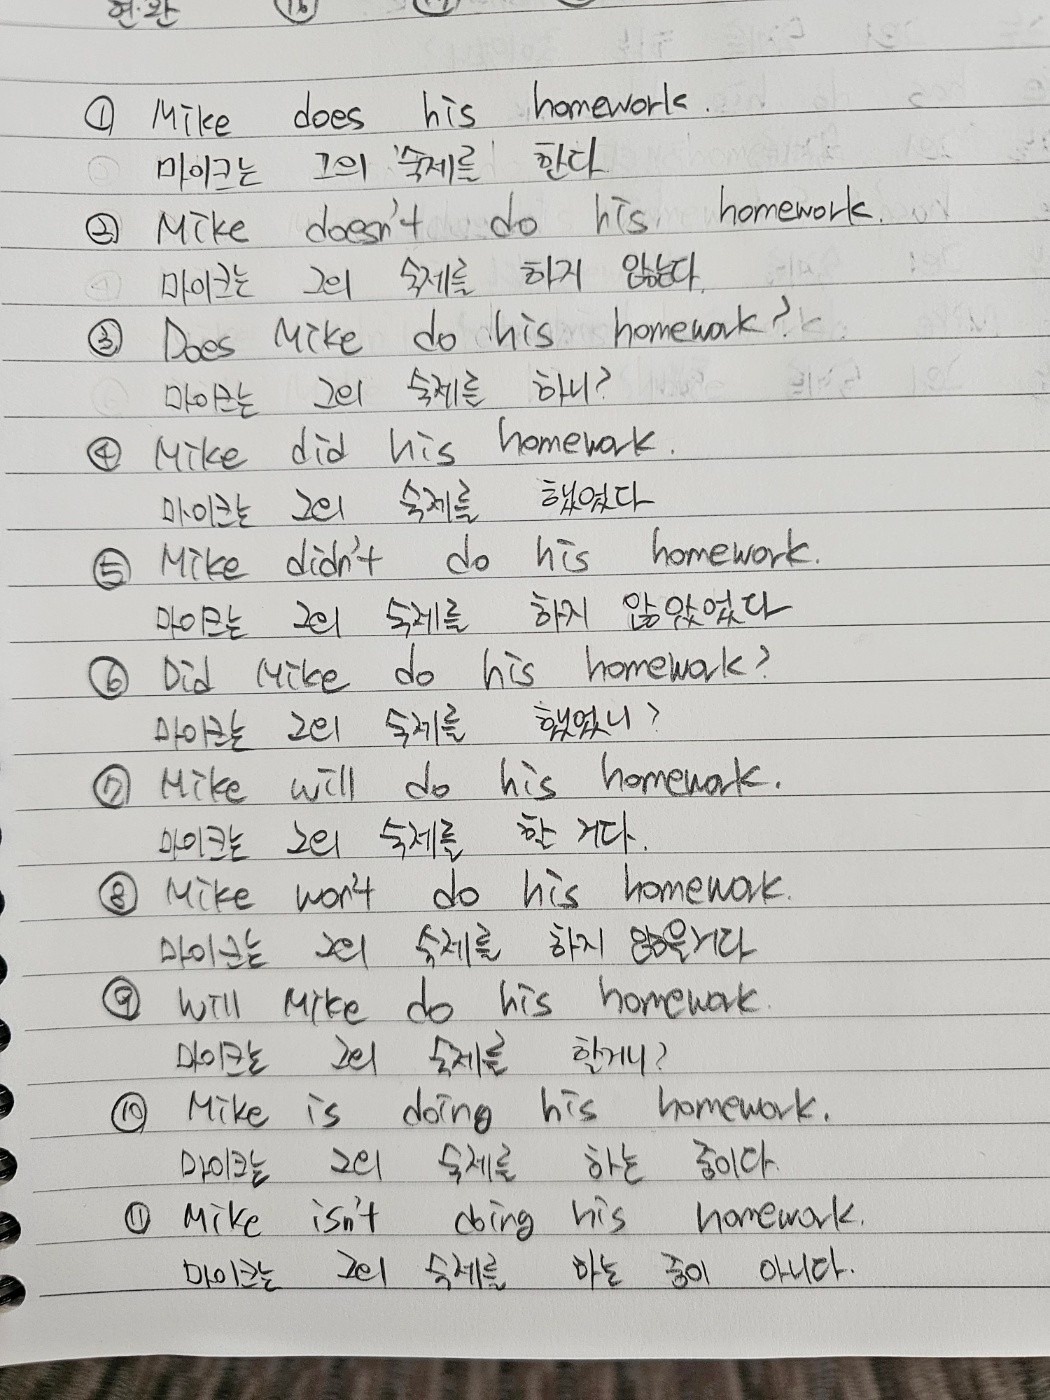 현.완 ⑯
① Mike does his homework.
마이크는 그의 숙제를 한다
② Mike doesn't do his homework.
마이크는 그의 숙제를 하지 않는다.
③ Does Mike do his homework?
마이크는 그의 숙제를 하니?
④ Mike did his homework.
마이크는 그의 숙제를 했었다
⑤ Mike didn't do his homework.
마이크는 그의 숙제를 하지 않았었다
⑥ Did Mike do his homework?
마이크는 그의 숙제를 했었니?
⑦ Mike will do his homework.
마이크는 그의 숙제를 할 거다.
⑧ Mike won't do his homework.
마이크는 그의 숙제를 하지 않을거다
⑨ Will Mike do his homework.
마이크는 그의 숙제를 할거니?
⑩ Mike is doing his homework.
마이크는 그의 숙제를 하는 중이다.
⑪ Mike isn't doing his homework.
마이크는 그의 숙제를 하는 중이 아니다.